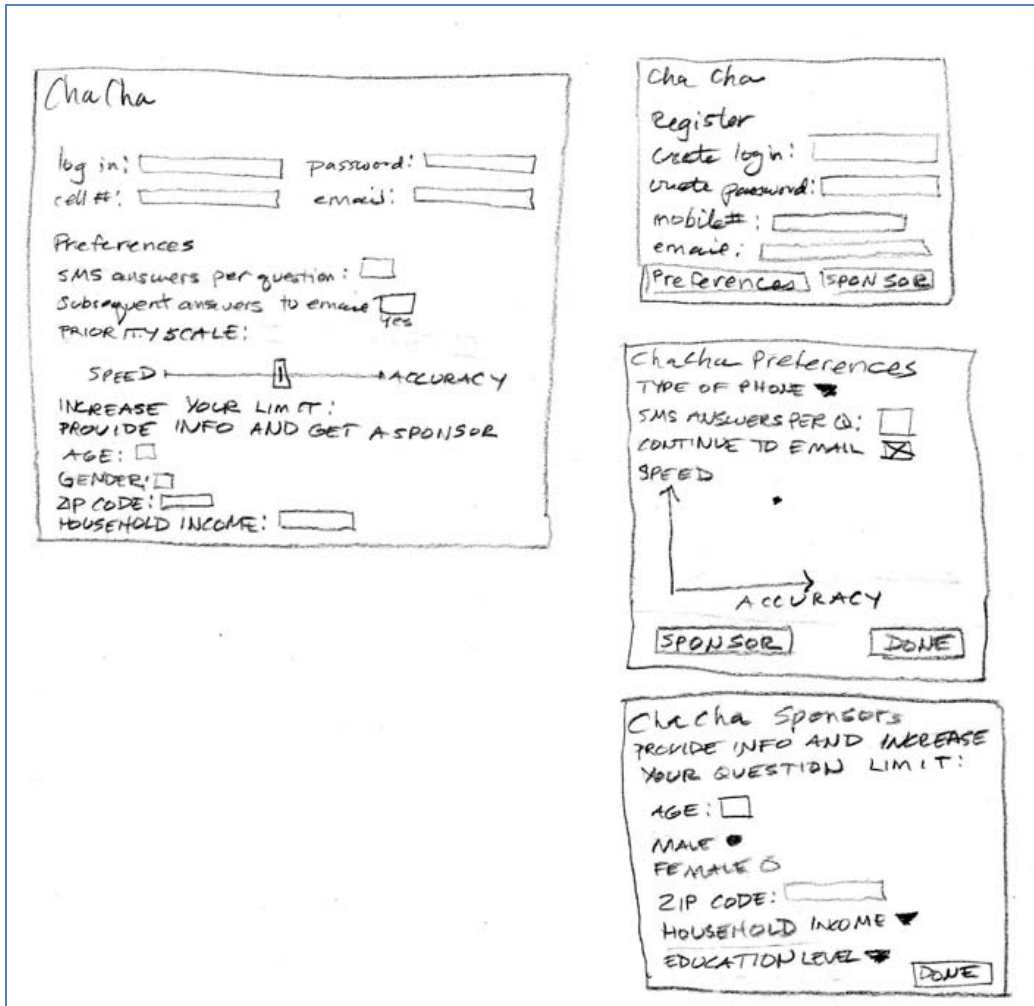 ChaCha
log in: password:
cell #: email:
Preferences
SMS answers per question:
Subsequent answers to email
yes
PRIORITY SCALE:
SPEED ACCURACY
INCREASE YOUR LIMIT:
PROVIDE INFO AND GET A SPONSOR
AGE:
GENDER:
ZIP CODE:
HOUSEHOLD INCOME:
Cha Cha
Register
create login:
create password:
mobile#:
email:
Preferences SPONSOR
ChaCha Preferences
TYPE OF PHONE
SMS ANSWERS PER Q:
CONTINUE TO EMAIL
SPEED
ACCURACY
SPONSOR DONE
ChaCha Sponsors
PROVIDE INFO AND INCREASE
YOUR QUESTION LIMIT:
AGE:
MALE
FEMALE
ZIP CODE:
HOUSEHOLD INCOME
EDUCATION LEVEL
DONE